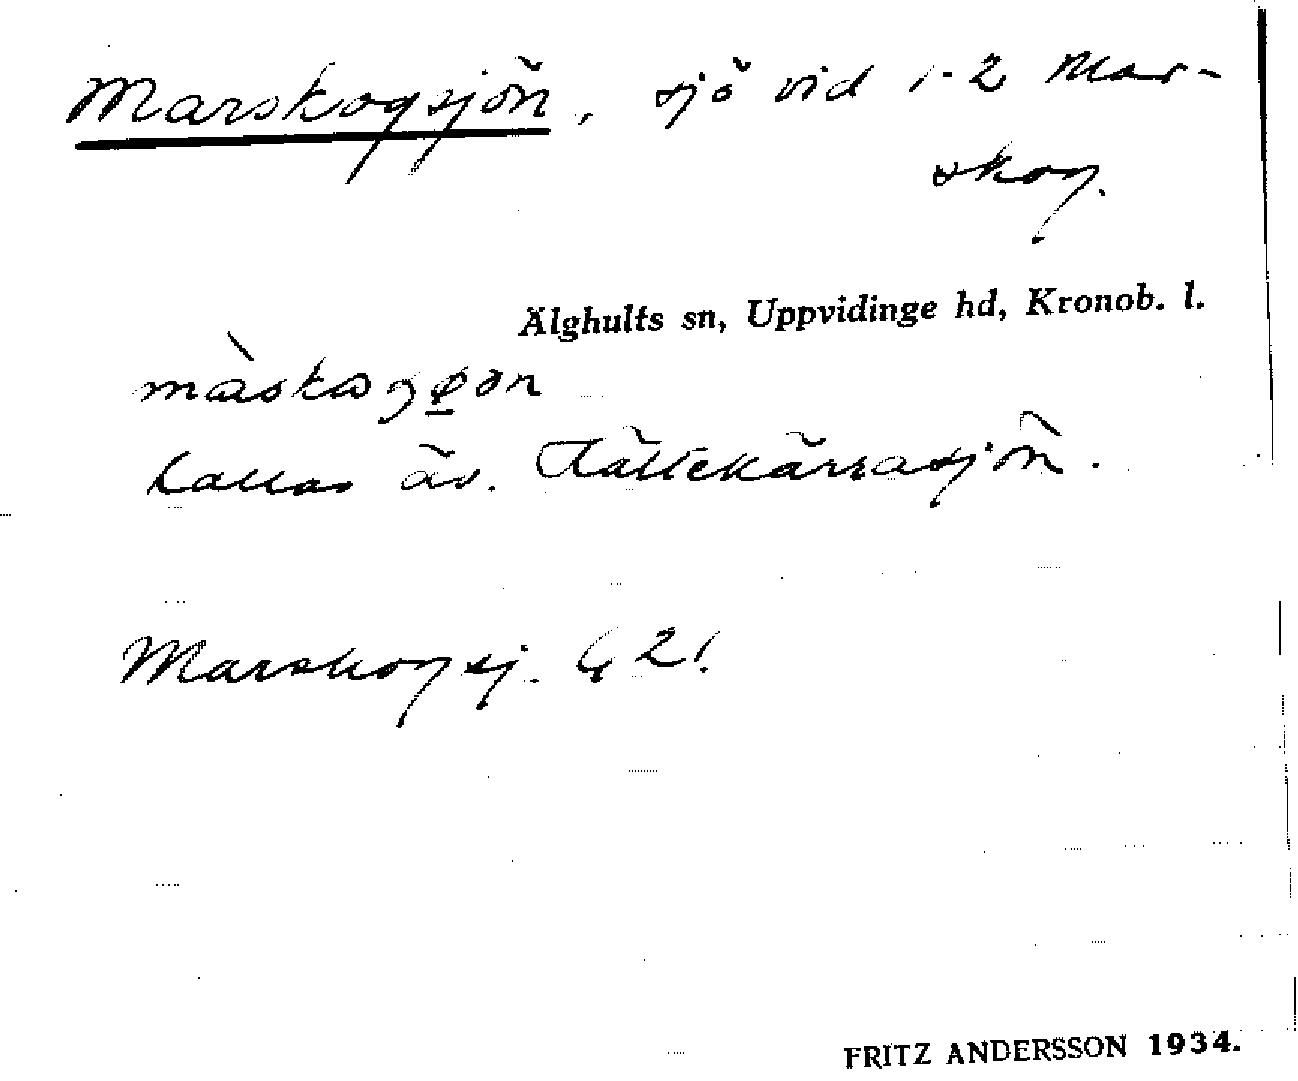 Marskogsjön, sjö vid 1-2 Mar-
skog.
Älghults sn, Uppvidinge hd, Kronob. l.
kallas äv. Kättekärrasjön.
Marskogsj. G 21.
FRITZ ANDERSSON 1934.